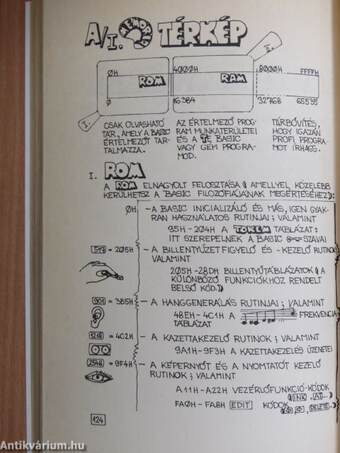 A/I. MEMÓRIA TÉRKÉP
0H 4000H 8000H FFFFH
ROM RAM
0 16384 32768 65535
I. II.
CSAK OLVASHATÓ
TÁR, AMELY A BASIC
ÉRTELMEZŐT TAR-
TALMAZZA.
AZ ÉRTELMEZŐ PROG-
RAM MUNKATERÜLETEI
A TE BASIC
VAGY GÉPI PROGRA-
MOD.
TÁRBŐVÍTÉS,
HOGY IGAZÁN
PROFI PROGRA-
MOT ÍRHASS.
I. ROM
A ROM ELNAGYOLT FELOSZTÁSA (AMELLYEL KÖZELEBB
KERÜLHETSZ A BASIC FILOZÓFIÁJÁNAK MEGÉRTÉSÉHEZ):
0H – A BASIC INICIALIZÁLÓ ÉS MÁS, IGEN GYAK-
RAN HASZNÁLATOS RUTINJAI; VALAMINT
95H - 204H A TOKEN TÁBLÁZAT:
ITT SZEREPELNEK A BASIC SZAVAI
517 = 205H – A BILLENTYŰZET FIGYELŐ ÉS -KEZELŐ RUTINOK
VALAMINT
205H - 28DH BILLENTYŰTÁBLÁZATOK (A
KÜLÖNBÖZŐ FUNKCIÓKHOZ RENDELT
BELSŐ KÓD)
= 3B5H – A HANGGENERÁLÁS RUTINJAI; VALAMINT
48EH - 4C1H A FREKVENCIA
TÁBLÁZAT
= 4C2H – A KAZETTAKEZELŐ RUTINOK; VALAMINT
9A1H - 9F3H A KAZETTAKEZELÉS ÜZENETEI
= 9F4H – A KÉPERNYŐT ÉS A NYOMTATÓT KEZELŐ
RUTINOK; VALAMINT
A11H - A22H VEZÉRLŐFUNKCIÓ-KÓDOK
(INK, AT...)
FA0H - FA8H EDIT KÓDOK
124
Antikvárium.hu